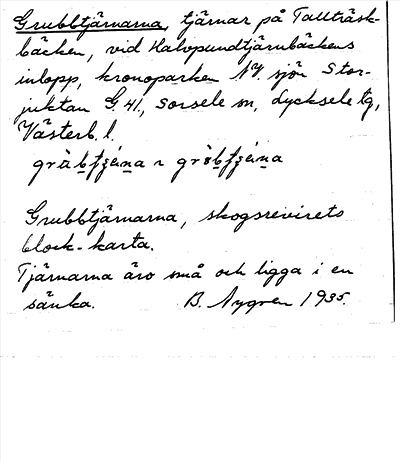 Grubbtjärnarna, tjärnar på Tallträsk-
bäcken, vid Halvpundtjärnbäckens
inlopp, kronoparken NV. sjön Stor-
juktan G. 41, Sorsele sn, Lycksele tg,
Västerb. l.
Grubbtjärnarna, skogsrevirets
block-karta.
Tjärnarna äro små och ligga i en
sänka. B. Nygren 1935.